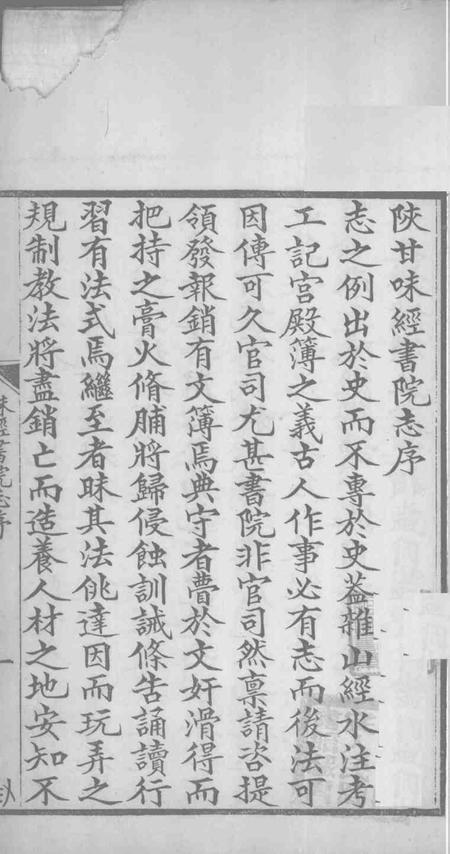 陜甘味經書院志序
志之例出於史而不專於史葢雜山經水注考
工記宮殿簿之義古人作事必有志而後法可
因傳可久官司尤甚書院非官司然稟請咨提
領發報銷有文簿焉典守者瞢於文奸滑得而
把持之膏火脩脯將歸侵蝕訓誡條告誦讀行
習有法式焉繼至者昧其法佻達因而玩弄之
規制教法將盡銷亡而造養人材之地安知不
味經書院志序
一